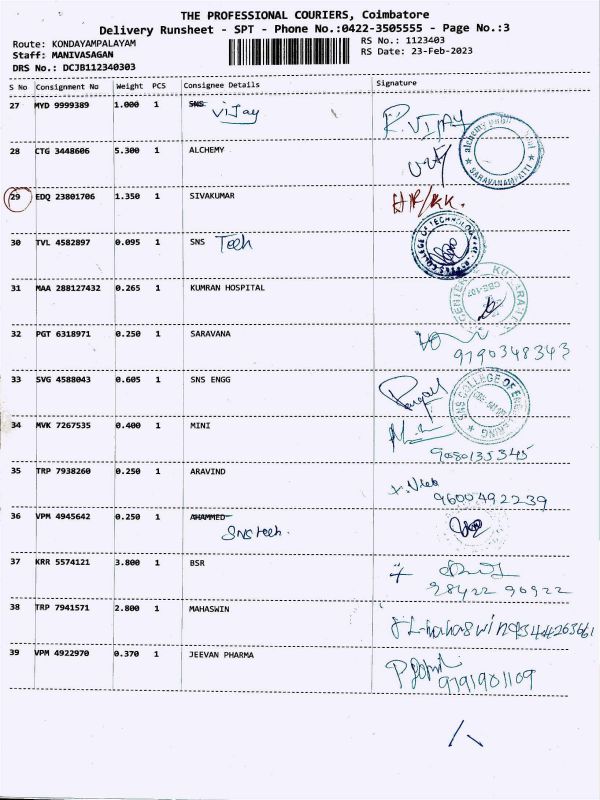 THE PROFESSIONAL COURIERS, Coimbatore
Delivery Runsheet - SPT - Phone No.:0422-3505555 - Page No.:3
Route: KONDAYAMPALAYAM RS No.: 1123403
Staff: MANIVASAGAN RS Date: 23-Feb-2023
DRS No.: DCJB112340303
S No Consignment No Weight PCS Consignee Details Signature
27 MYD 9999389 1.000 1 SNS Vijay R.VIJAY
28 CTG 3448606 5.300 1 ALCHEMY
SARAVANAMPATTI
29 EDQ 23801706 1.350 1 SIVAKUMAR
30 TVL 4582897 0.095 1 SNS Tech
COLLEGE OF TECHNOLOGY
31 MAA 288127432 0.265 1 KUMRAN HOSPITAL
32 PGT 6318971 0.250 1 SARAVANA
9190348343
33 SVG 4588043 0.605 1 SNS ENGG
SNS COLLEGE OF ENGINEERING
34 MVK 7267535 0.400 1 MINI
9080135345
35 TRP 7938260 0.250 1 ARAVIND
9600492239
36 VPM 4945642 0.250 1 AHAMMED
SNS tech.
37 KRR 5574121 3.800 1 BSR
98422 90922
38 TRP 7941571 2.800 1 MAHASWIN
39 VPM 4922970 0.370 1 JEEVAN PHARMA
9791901109